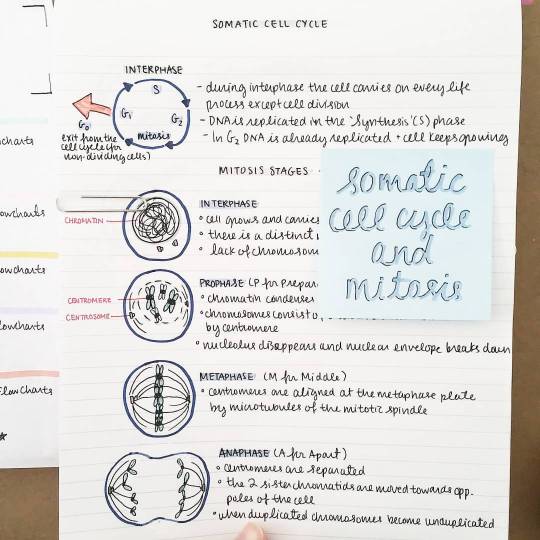 SOMATIC CELL CYCLE
INTERPHASE
S
G₁
G₂
mitosis
G₀
exit from the
cell cycle (for
non-dividing cells)
- during interphase the cell carries on every life
process except cell division
- DNA is replicated in the 'Synthesis' (S) phase
- In G₂ DNA is already replicated + cell keeps growing
MITOSIS STAGES
somatic
cell cycle
and
mitosis
CHROMATIN
INTERPHASE
• cell grows and carries
• there is a distinct
• lack of chromosom
CENTROMERE
CENTROSOME
PROPHASE (P for Prepar
• chromatin condenses
• chromosomes consist o
by centromere
• nucleolus disappears and nuclear envelope breaks down
METAPHASE (M for Middle)
• centromeres are aligned at the metaphase plate
by microtubules of the mitotic spindle
ANAPHASE (A for Apart)
• centromeres are separated
• the 2 sister chromatids are moved towards opp-
poles of the cell
• when duplicated chromosomes become unduplicated
charts
lowcharts
owcharts
lowcharts
FlowCharts